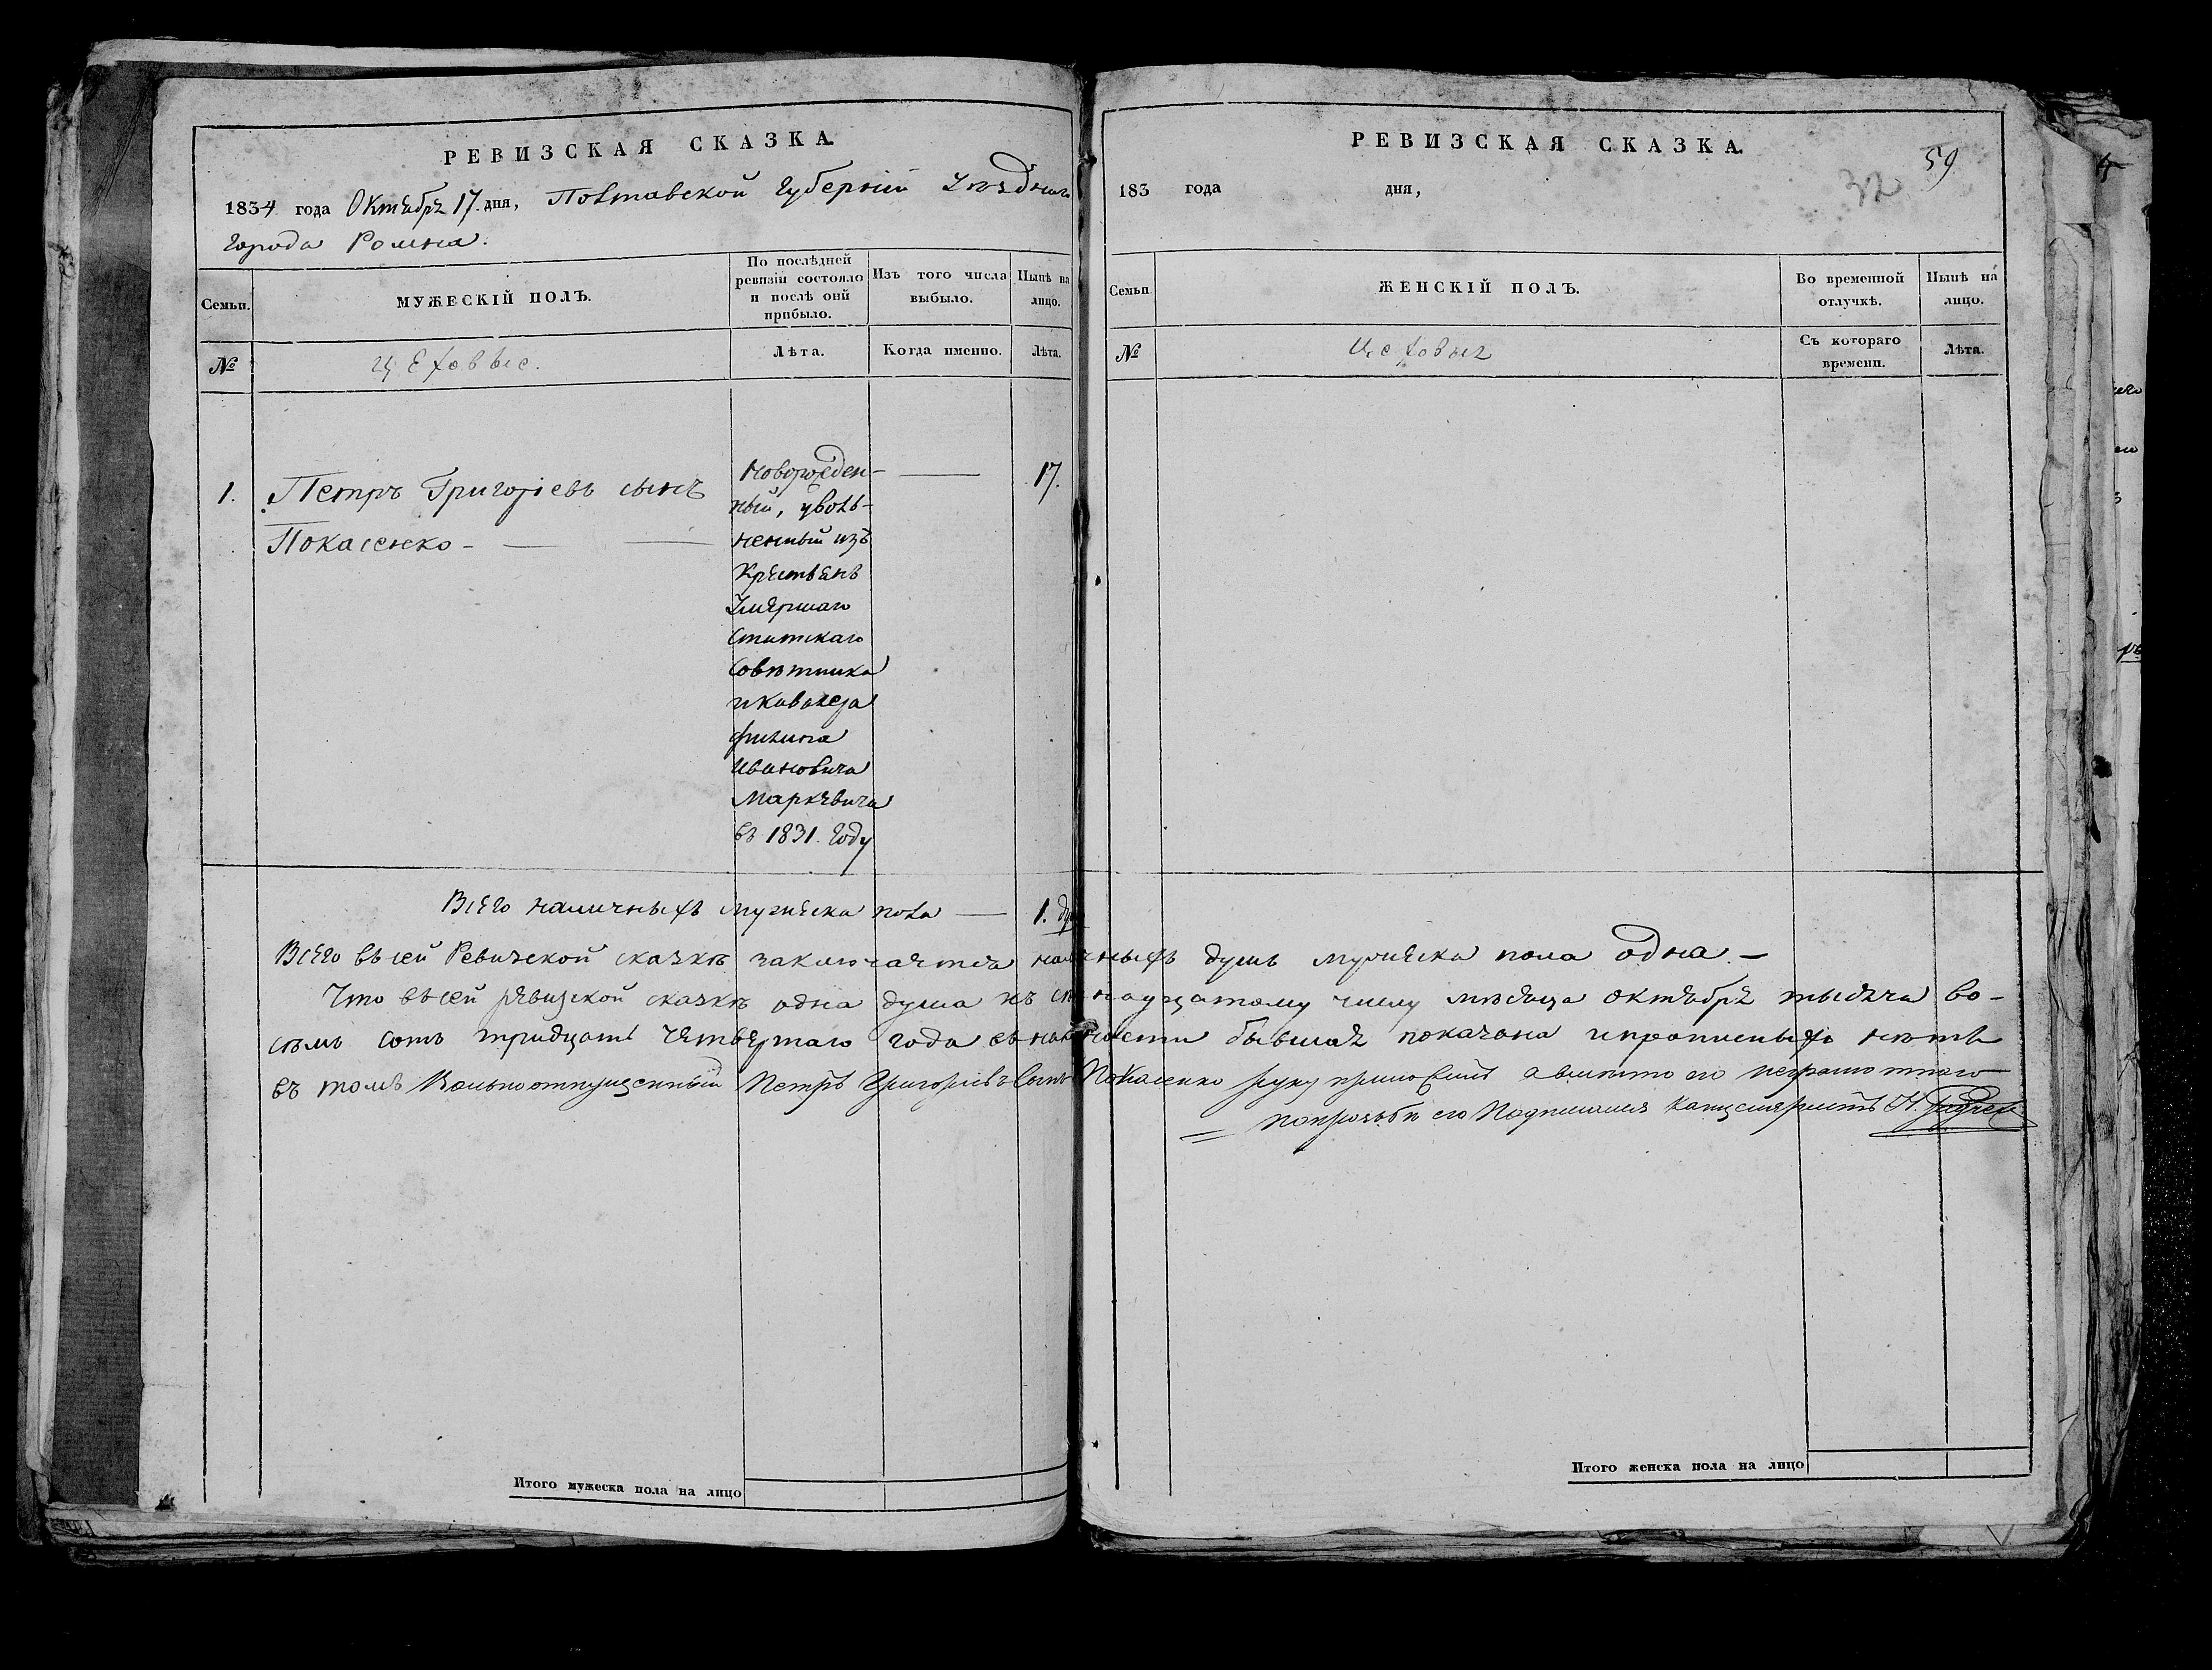 РЕВИЗСКАЯ СКАЗКА.
1834 года Октября 17. дня, Полтавской Губерніи Уѣзднаго
города Ромна.
Семьи.
МУЖЕСКІЙ ПОЛЪ.
По послѣдней
ревизіи состояло
и послѣ оной
прибыло.
Изъ того числа
выбыло.
Нынѣ на
лицо.
№
Цеховые.
Лѣта.
Когда именно.
Лѣта.
1.
Петръ Григоріевъ сынъ
Покасенко
Новорожден-
ный, уволь-
ненный изъ
Крестьянъ
Умершаго
Статскаго
Совѣтника
и Кавалера
Филипа
Ивановича
Маркевича
въ 1831. году
17.
Всего наличныхъ мужеска пола — 1. ду
Всего въ сей Ревизской сказкѣ заключается наличныхъ душъ мужеска пола одна. —
Что въ сей ревизской сказкѣ одна душа къ надцатому числу мѣсяца октября тысяча во-
семь сотъ тридцать четвертаго года въ наличности бывшая показана и прописныхъ нѣтъ
въ томъ Вольноотпущенный Петръ Григоріевъ Сынъ Покасенко руку приложилъ а вмѣсто его неграмотного
по прозьбѣ его Подписался Канцеляристъ Н.
Итого мужеска пола на лицо
РЕВИЗСКАЯ СКАЗКА.
59
32
183 года дня,
Семьи.
ЖЕНСКІЙ ПОЛЪ.
Во временной
отлучкѣ.
Нынѣ на
лицо.
№
Цеховыя
Съ котораго
времени.
Лѣта.
Итого женска пола на лицо